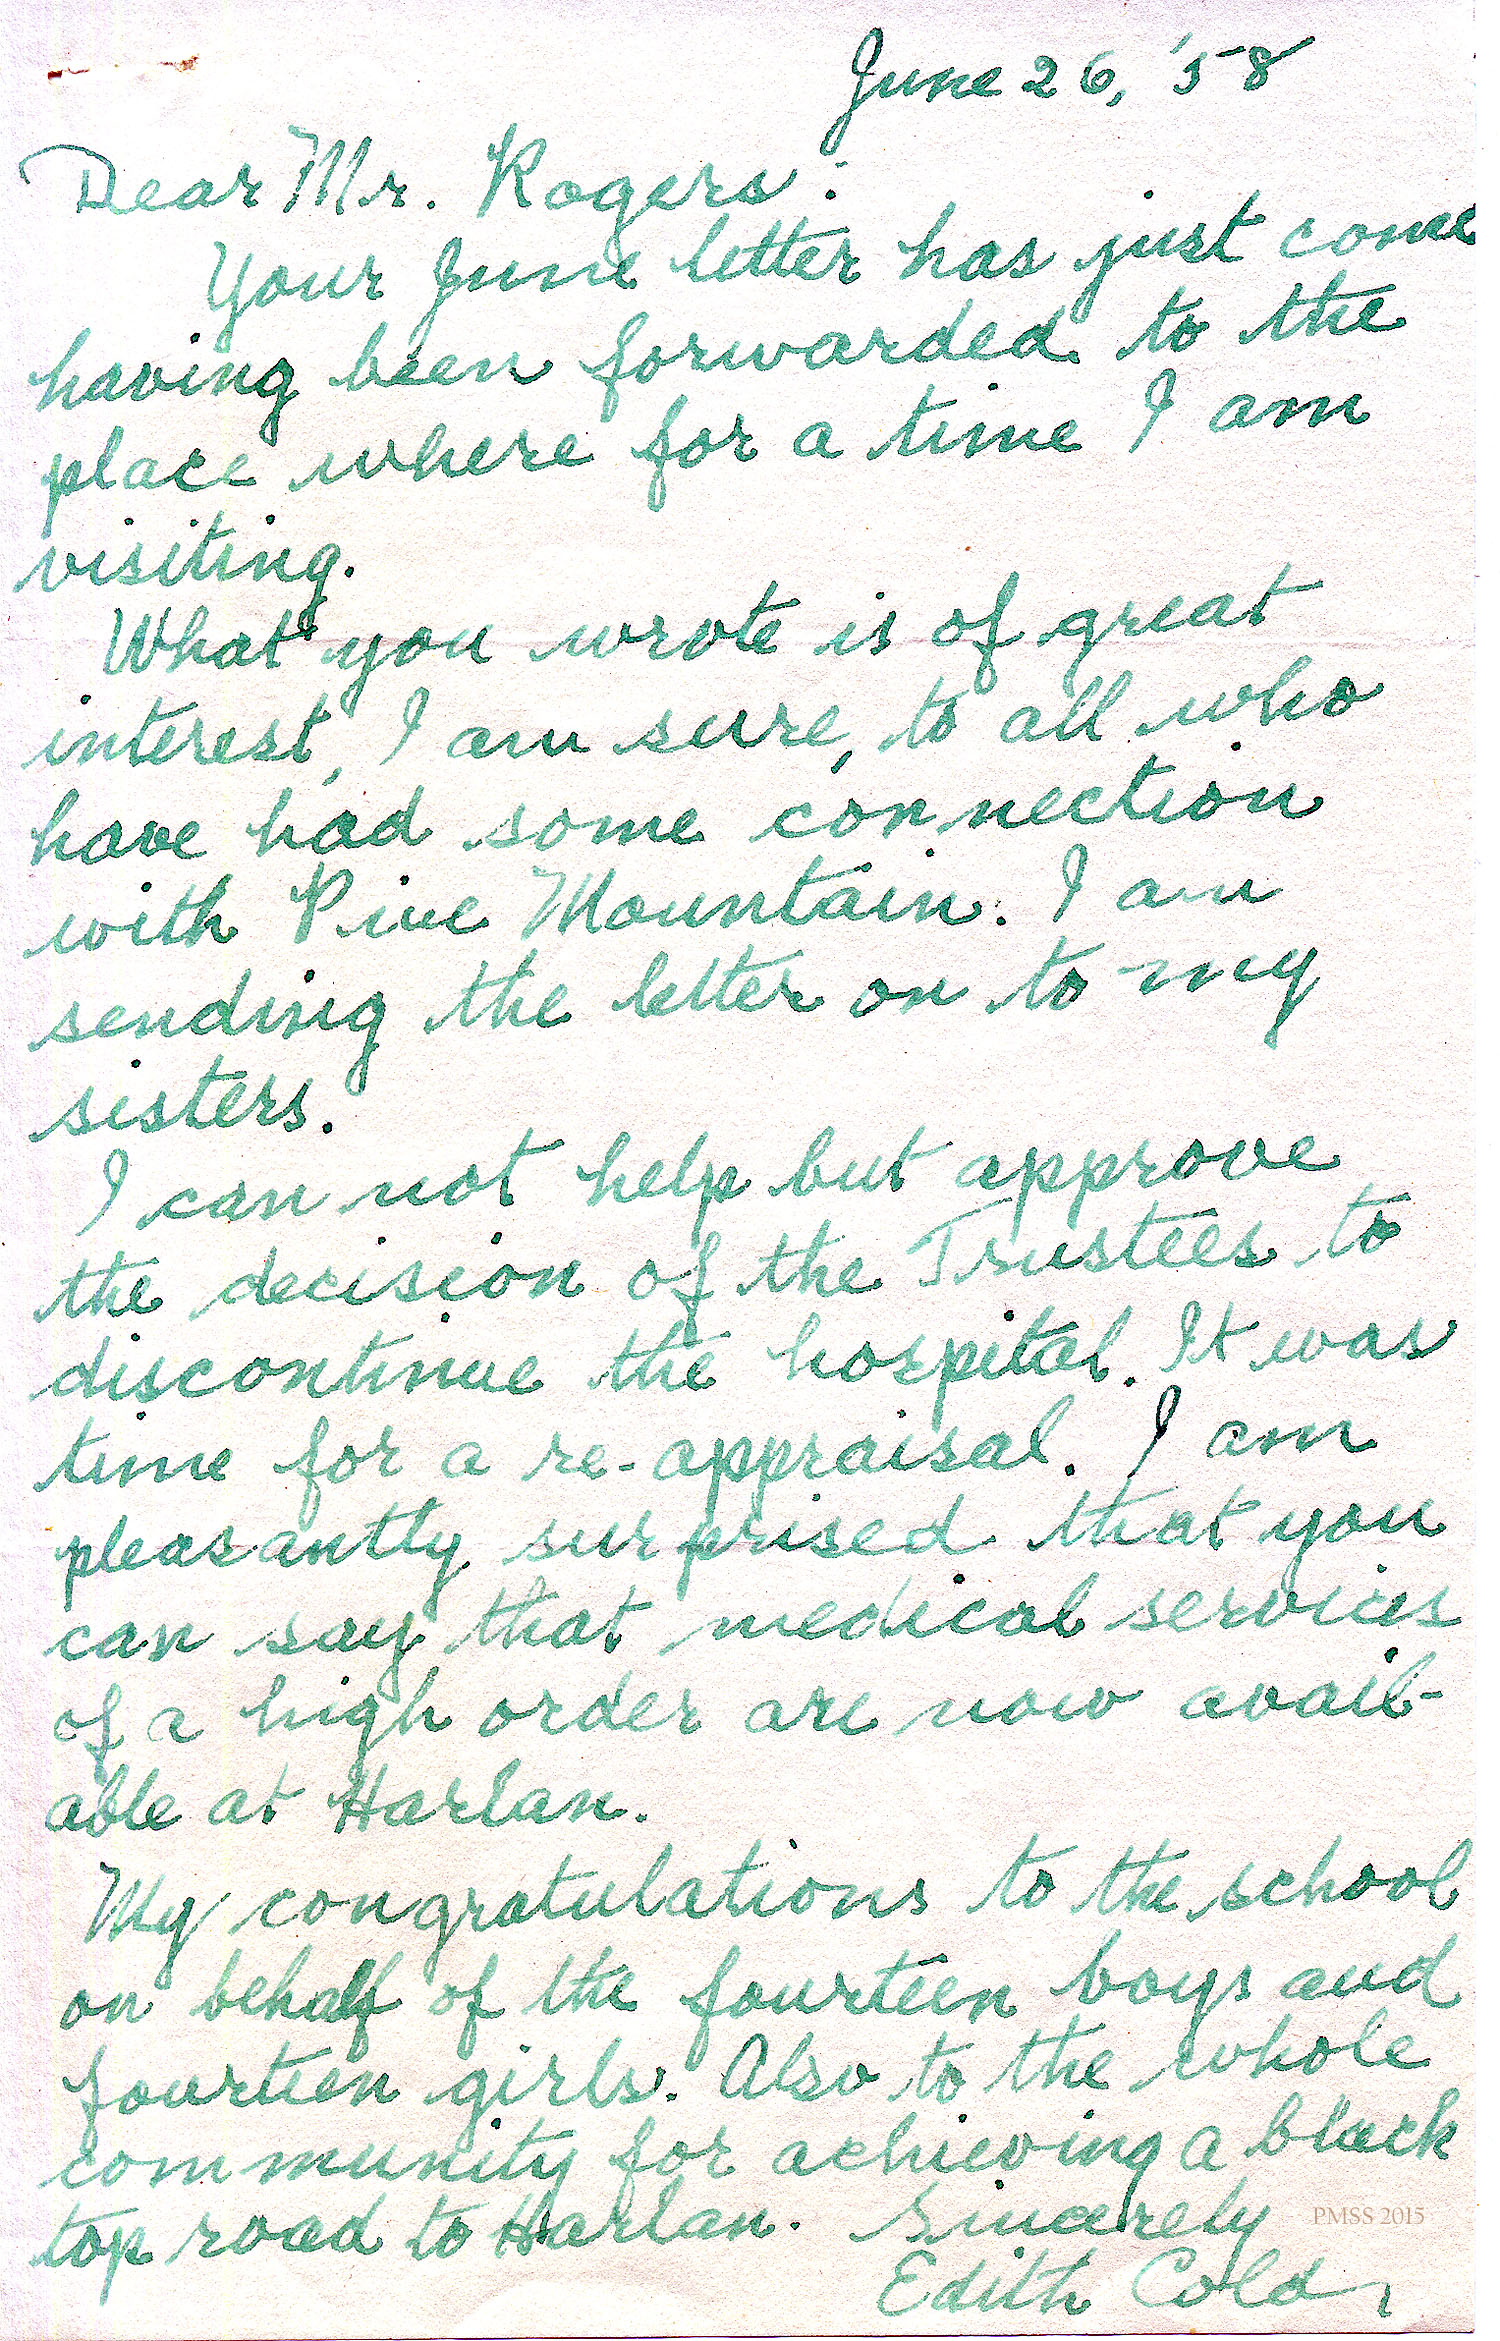 June 26, '58
Dear Mr. Rogers:
Your June letter has just come
having been forwarded to the
place where for a time I am
visiting.
What you wrote is of great
interest, I am sure, to all who
have had some connection
with Pine Mountain. I am
sending the letter on to my
sisters.
I can not help but approve
the decision of the Trustees to
discontinue the hospital. It was
time for a re-appraisal. I am
pleasantly surprised that you
can say that medical services
of a high order are now avail-
able at Harlan.
My congratulations to the school
on behalf of the fourteen boys and
fourteen girls. Also to the whole
community for achieving a black
top road to Harlan. Sincerely
PMSS 2015
Edith Cold,